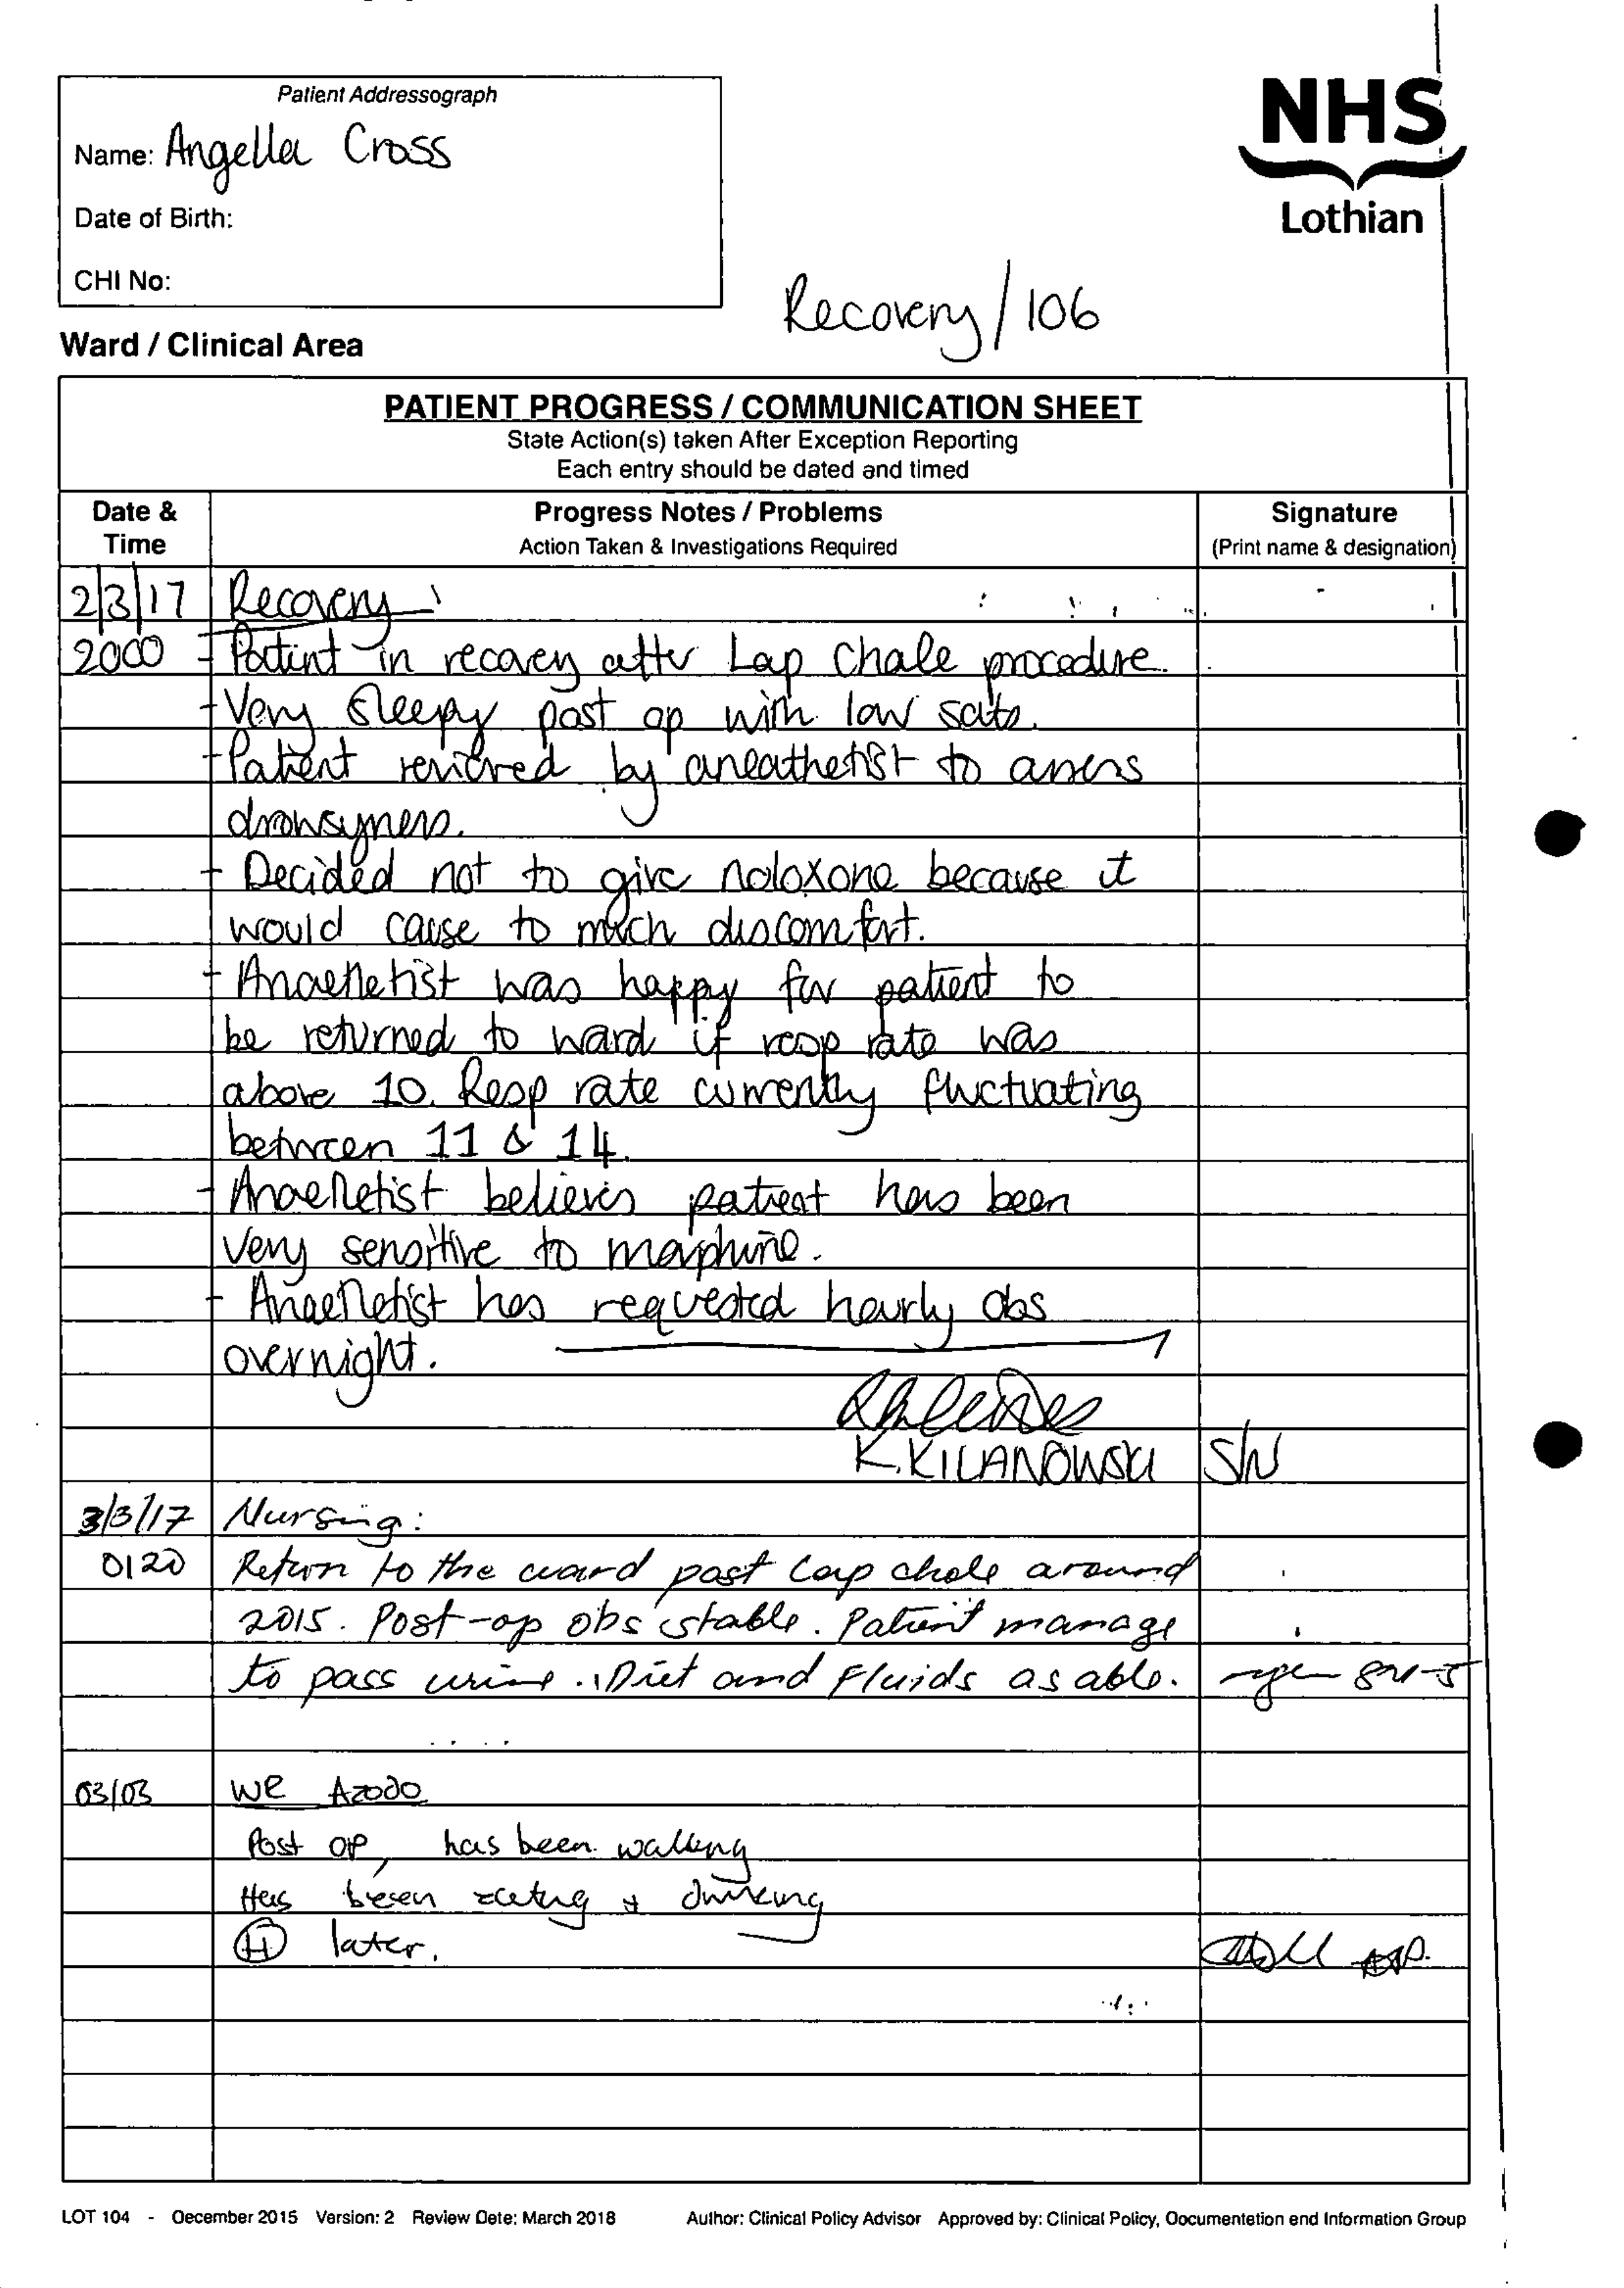 Patient Addressograph
Name: Angella Cross
Date of Birth:
CHI No:
NHS
Lothian
Recovery/106
Ward / Clinical Area
PATIENT PROGRESS / COMMUNICATION SHEET
State Action(s) taken After Exception Reporting
Each entry should be dated and timed
Date & Time
Progress Notes / Problems
Action Taken & Investigations Required
Signature
(Print name & designation)
2/3/17 Recovery
2000 - Patient in recovey after Lap Chole procedure.
- Very sleepy post op with low sats.
- Patient reviewed by aneathetist to assess
drowsyness.
- Decided not to give naloxone because it
would cause to much discomfort.
- Anaethetist was happy for patient to
be returned to ward if resp rate was
above 10. Resp rate currently fluctuating
between 11 & 14.
- Anaethetist believes patient has been
very sensitive to morphine.
- Anaethetist has requested hourly obs
overnight.
K. KILANOWSKI S/N
3/3/17 Nursing:
0120 Return to the ward post Lap chole around
2015. Post-op obs stable. Patient manage
to pass urine. Diet and Fluids as able.
03/03 WR
Post op, has been walking
Has been eating + drinking
(H) later.
LOT 104 - December 2015 Version: 2 Review Date: March 2018 Author: Clinical Policy Advisor Approved by: Clinical Policy, Documentation and Information Group